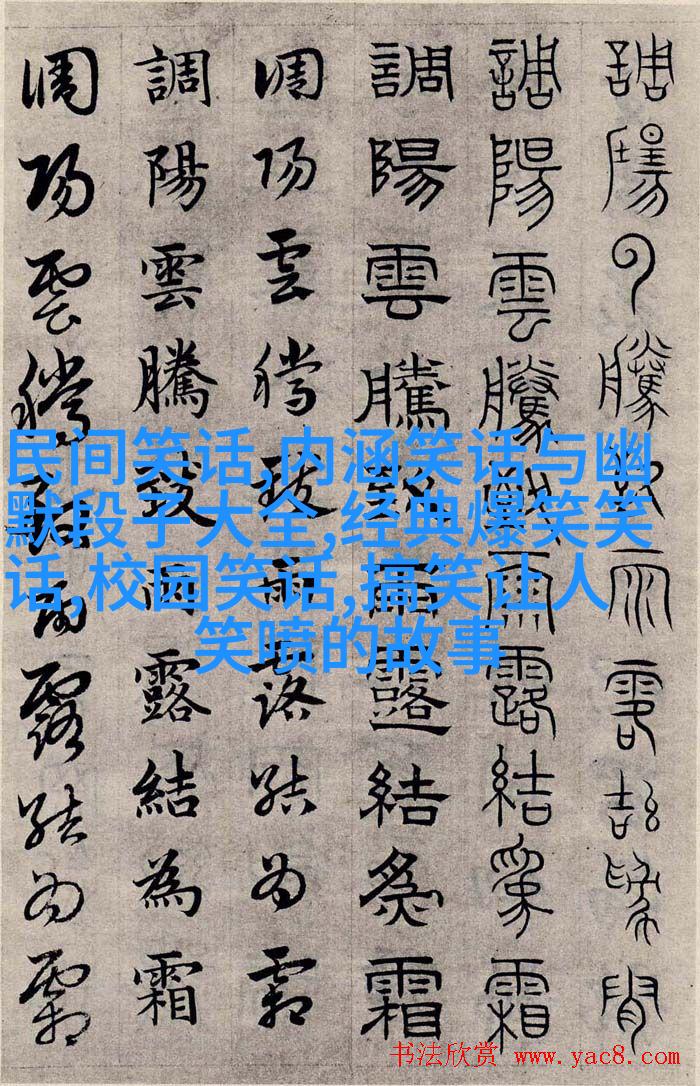 調陽雲騰致雨露結為霜
調陽雲騰致雨露結為霜
調陽雲騰致雨露結為霜
調陽雲騰致雨露結為霜
調陽雲騰致雨露結為霜
調陽雲騰致雨露結為霜
民间笑话,内涵笑话与幽
默段子大全,经典爆笑笑
话,校园笑话,搞笑让人
笑喷的故事
书法欣赏 www.yac8.com